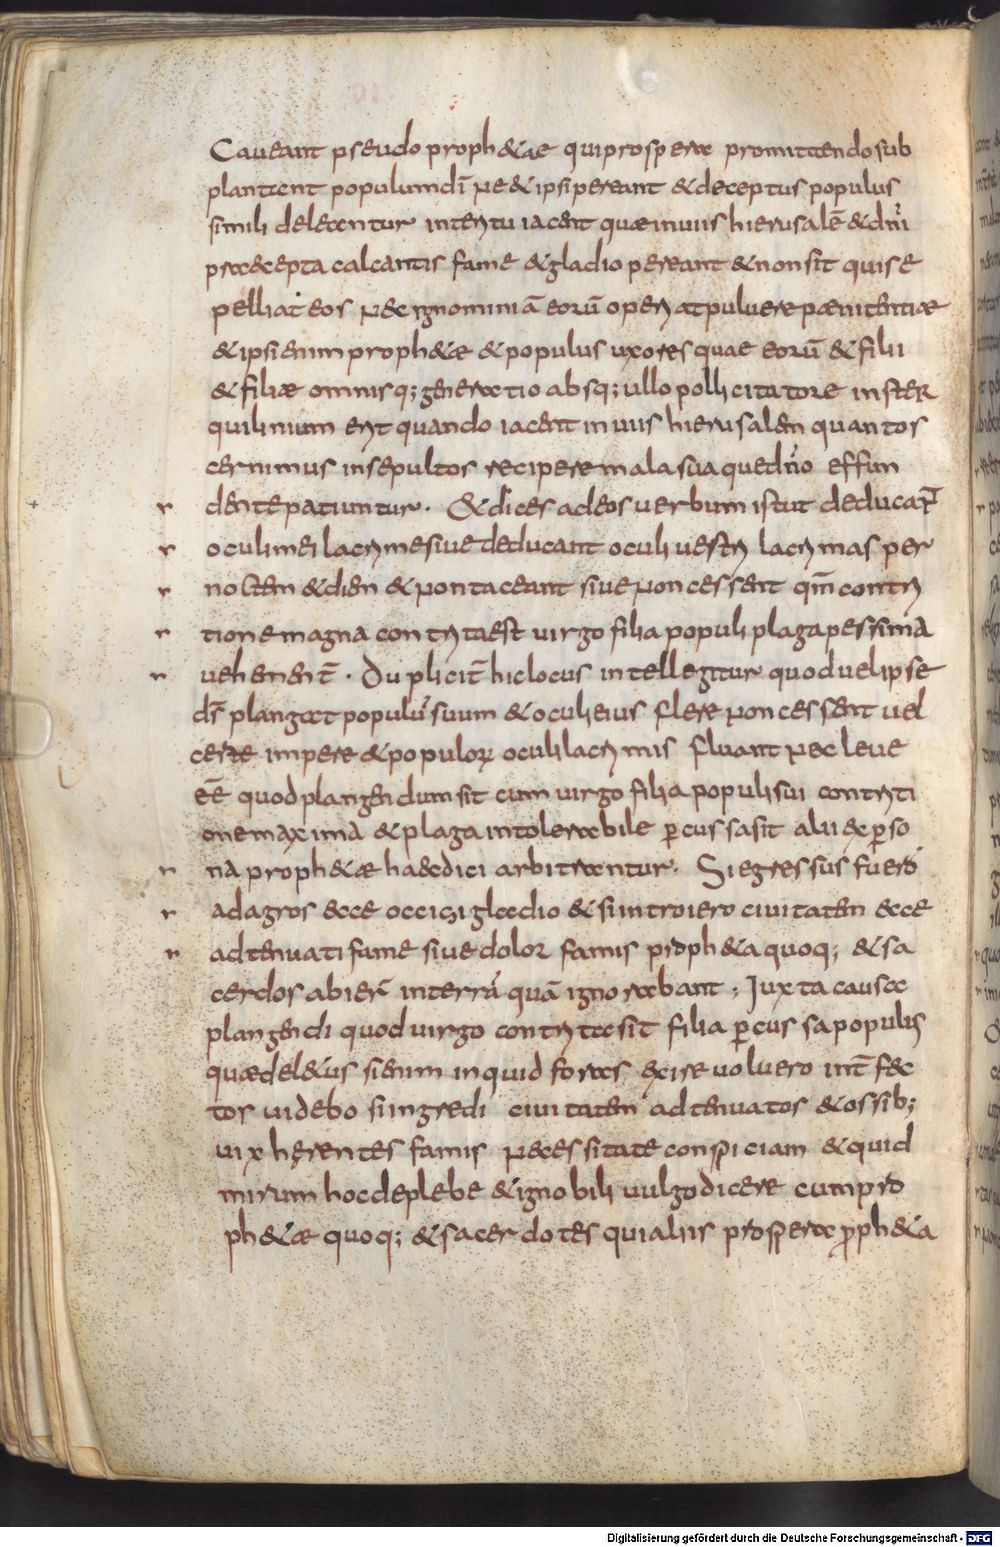 Caueant pseudo proph&ae qui prospera promittendo sub
plantent populum dī ne & ipsi pereant & deceptus populus
simili deleantur interitu iacent quae in uiis hierusalē & dn̄i
praecepta calcantis fame & gladio pereant & non sit qui se
pelliat eos nec ignominiā eorū operiat puluere paenitentiae
& ipsi enim proph&ae & populus uxores quae eorū & filii
& filiae omnisq; generatio absq; ullo pollicitatore in ster
quilinium erit quando iacent in uiis hierusalem quantos
cernimus insepultos recipere mala sua que dn̄o effun
dente patiuntur. & dices ad eos uerbum istut deducant̄
r
oculi mei lacrymes siue deducant oculi uestri lacrymas per
r
noctem & diem & non taceant siue non cessent qm̄ contri
r
tione magna contrita est uirgo filia populi plaga pessima
r
uehement̄. Duplicit̄ hic locus intellegitur quod uel ipse
r
ds̄ plangat populū suum & oculi eius flere non cessent uel
certe impere & populorꝝ oculi lacrymis fluant nec leue
eē quod plangendum sit cum uirgo filia populi sui contriti
one maxima & plaga intolerabile ꝑcussa sit alii ex ꝑso
na proph&ae haec dici arbitrantur. Si egressus fuero
r
ad agros ecce occisi gladio & si introiero ciuitatem ecce
r
adtenuati fame siue dolor famis proph&a quoq; & sa
r
cerdos abier̄ in terrā quā ignorabant; Iuxta causae
plangendi quod uirgo contrita sit filia ꝑcussa populis
quae del&us si enim inquid foras exire uoluero int̄fec
tos uidebo si ingredi ciuitatem adtenuatos & ossib;
uix herentes famis necessitate conspiciam & quid
mirum hoc de plebe & ignobili uulgo dicere cum pro
ph&ae quoq; & sacerdotes qui aliis prospera ꝓph&a